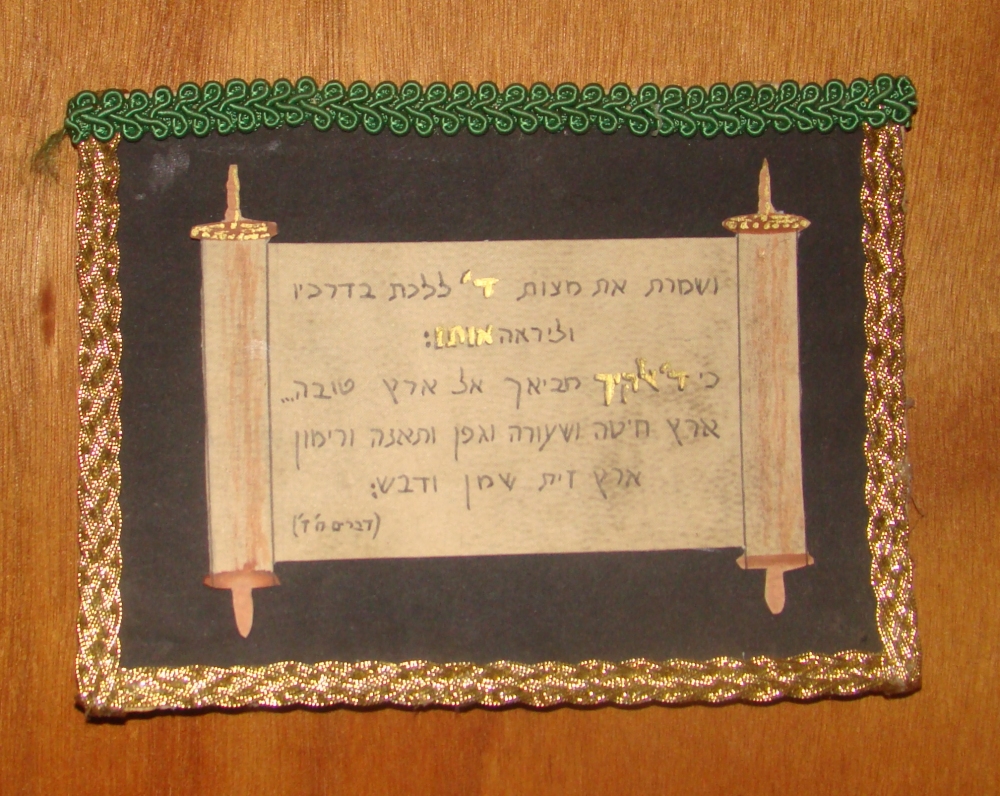 ושמרת את מצות ד' ללכת בדרכיו
וליראה אותו:
כי ד' אלקיך מביאך אל ארץ טובה...
ארץ חיטה ושעורה וגפן ותאנה ורימון
ארץ זית שמן ודבש:
(דברים ח' ד')